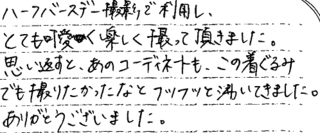 ハーフバースデー撮影で利用し、
とても可愛く楽しく撮って頂きました。
思い返すと、あのコーディネートも、この着ぐるみ
でも撮りたかったなとフツフツと沸いてきました。
ありがとうございました。